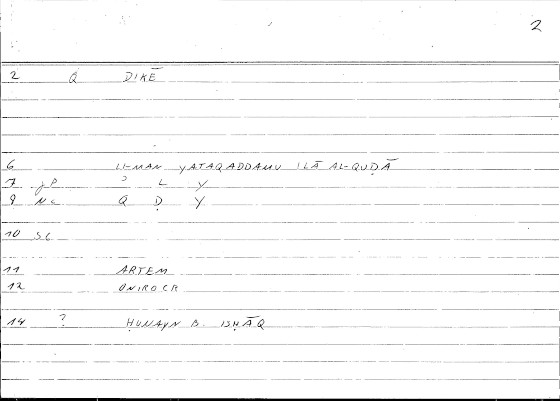 2
2 Q DIKĒ
6 LI-MAN YATAQADDAMU ILĀ AL-QUḌĀ
7 gP ʾ L Y
9 Nc Q Ḍ Y
10 SG
11 ARTEM
12 ONIROCR
14 ? ḤUNAYN B. ISḤĀQ